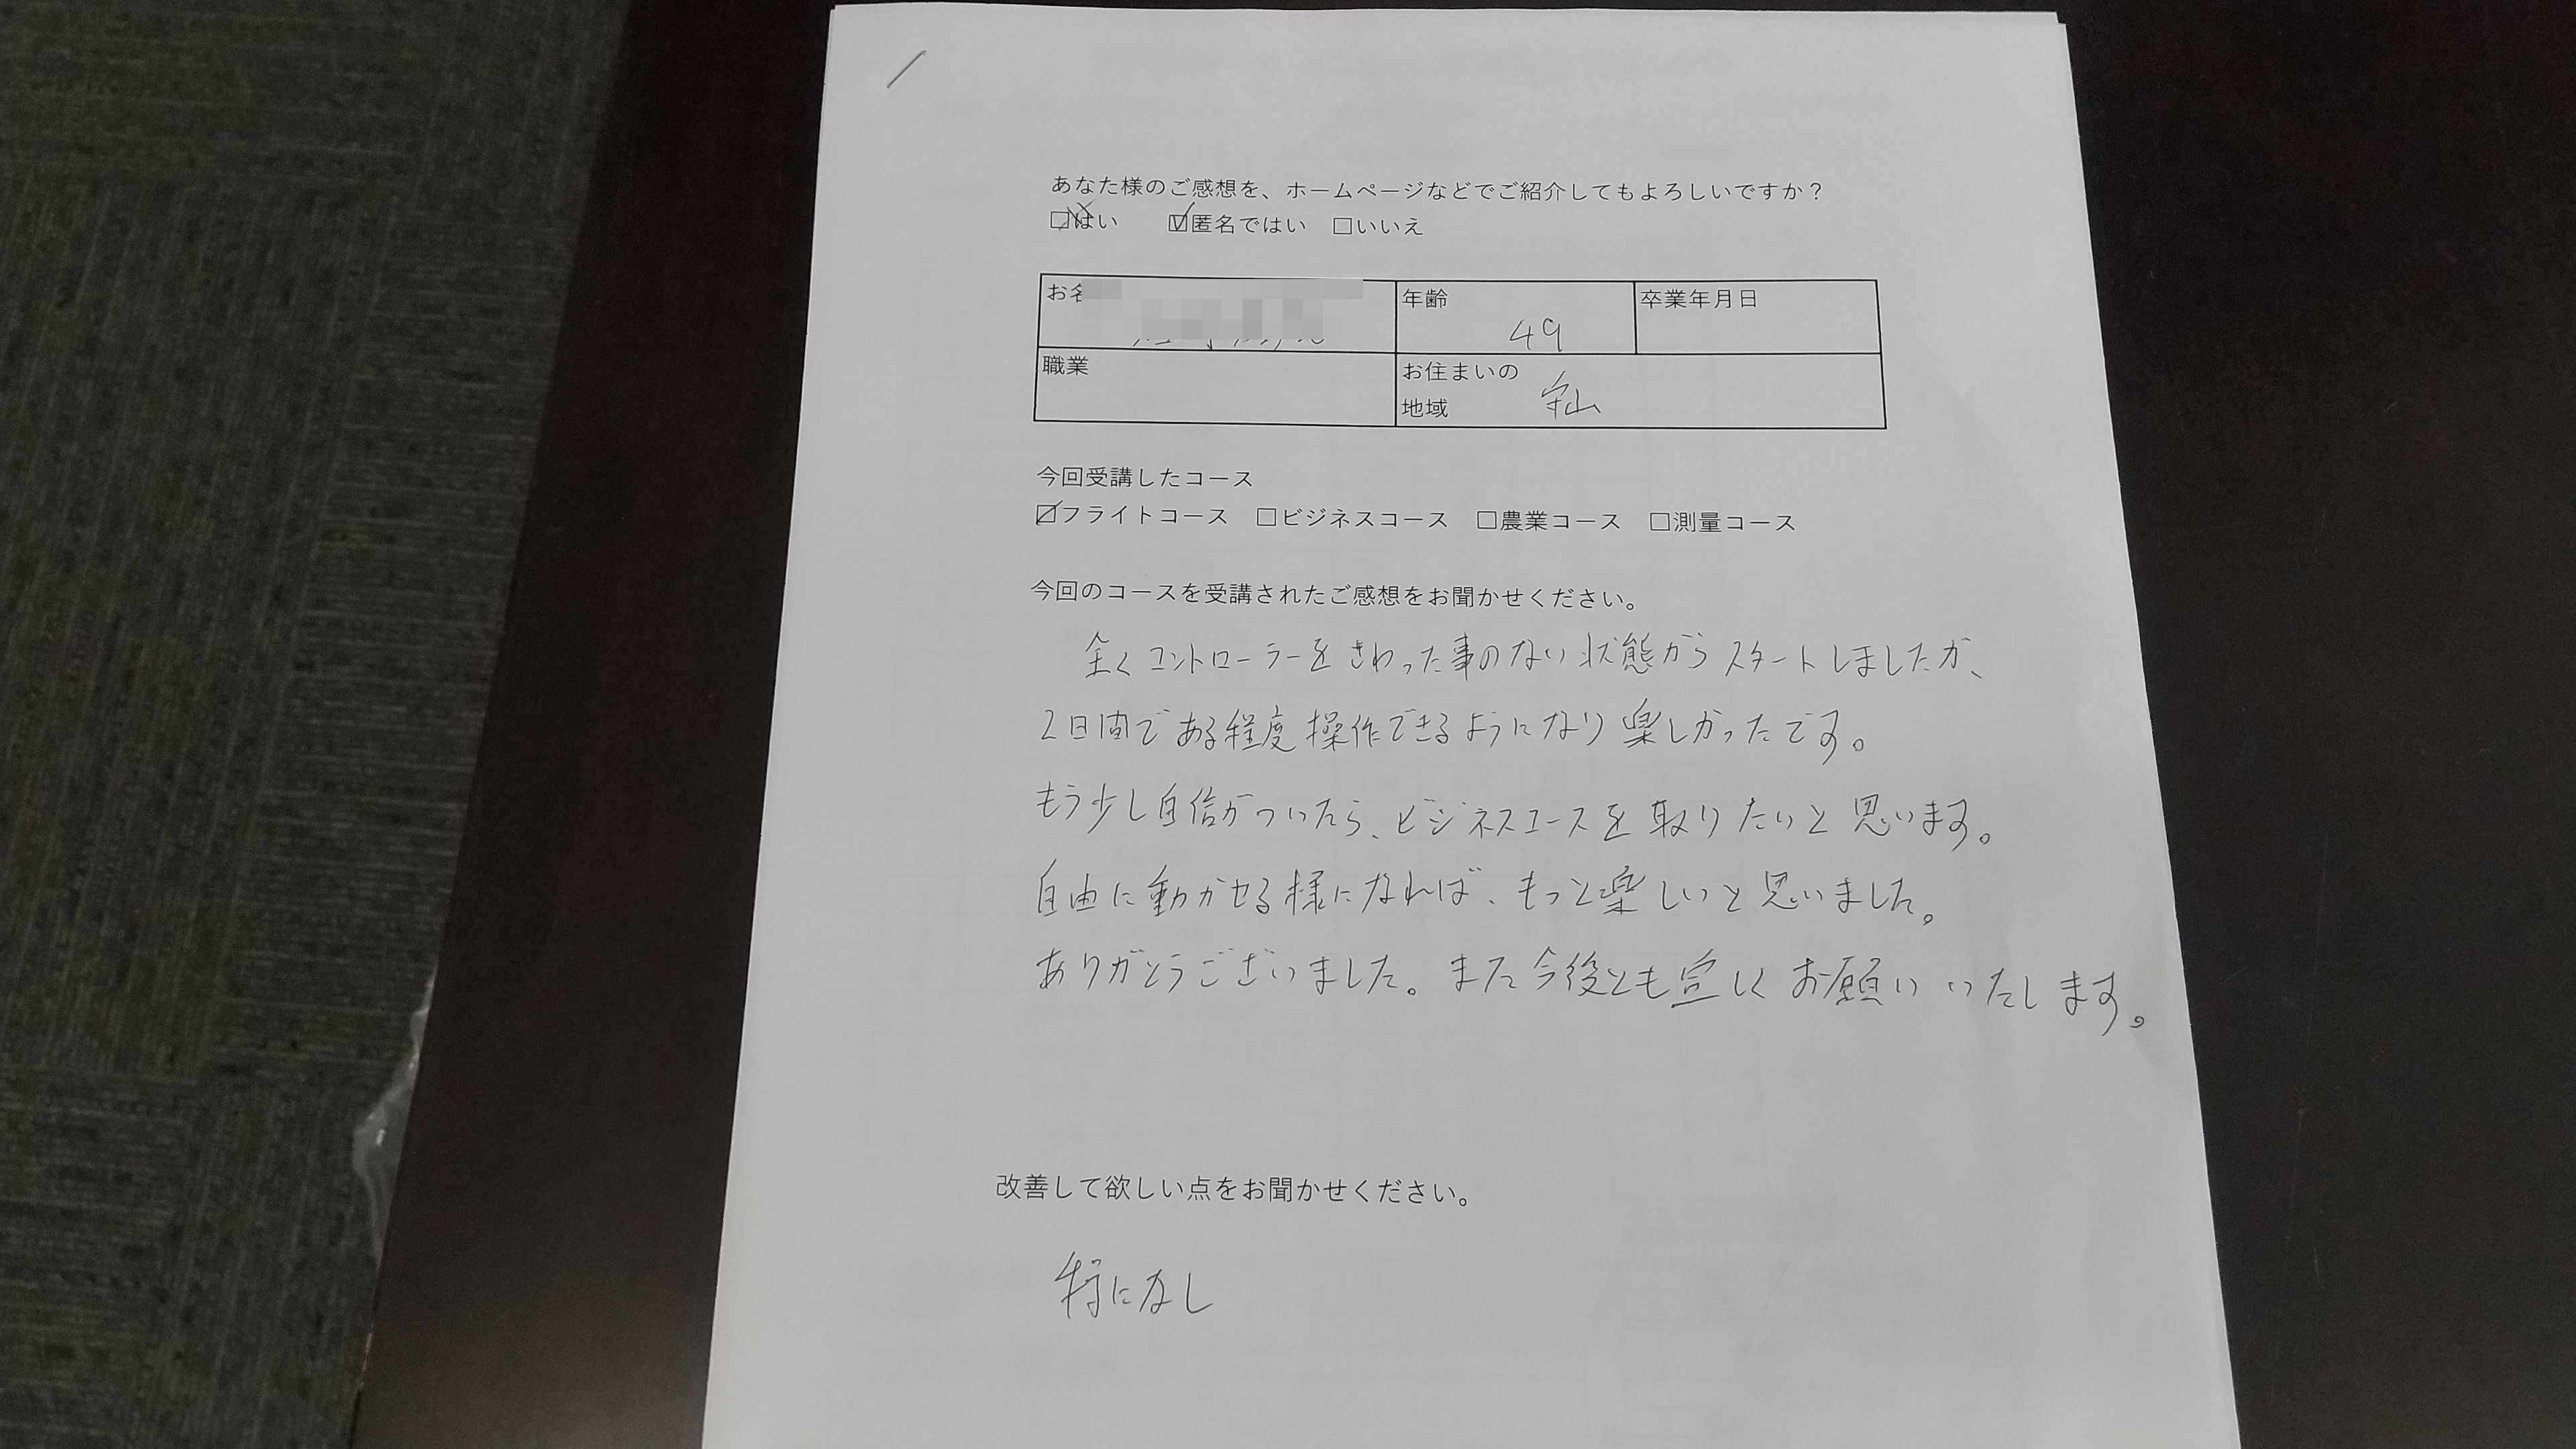 あなた様のご感想を、ホームページなどでご紹介してもよろしいですか？
□はい ☑匿名ではい □いいえ
お名
年齢
49
卒業年月日
職業
お住まいの
地域
守山
今回受講したコース
☑フライトコース □ビジネスコース □農業コース □測量コース
今回のコースを受講されたご感想をお聞かせください。
全くコントローラーをさわった事のない状態からスタートしましたが、
2日間である程度操作できるようになり楽しかったです。
もう少し自信がついたら、ビジネスコースを取りたいと思います。
自由に動かせる様になれば、もっと楽しいと思いました。
ありがとうございました。また今後とも宜しくお願いいたします。
改善して欲しい点をお聞かせください。
特になし